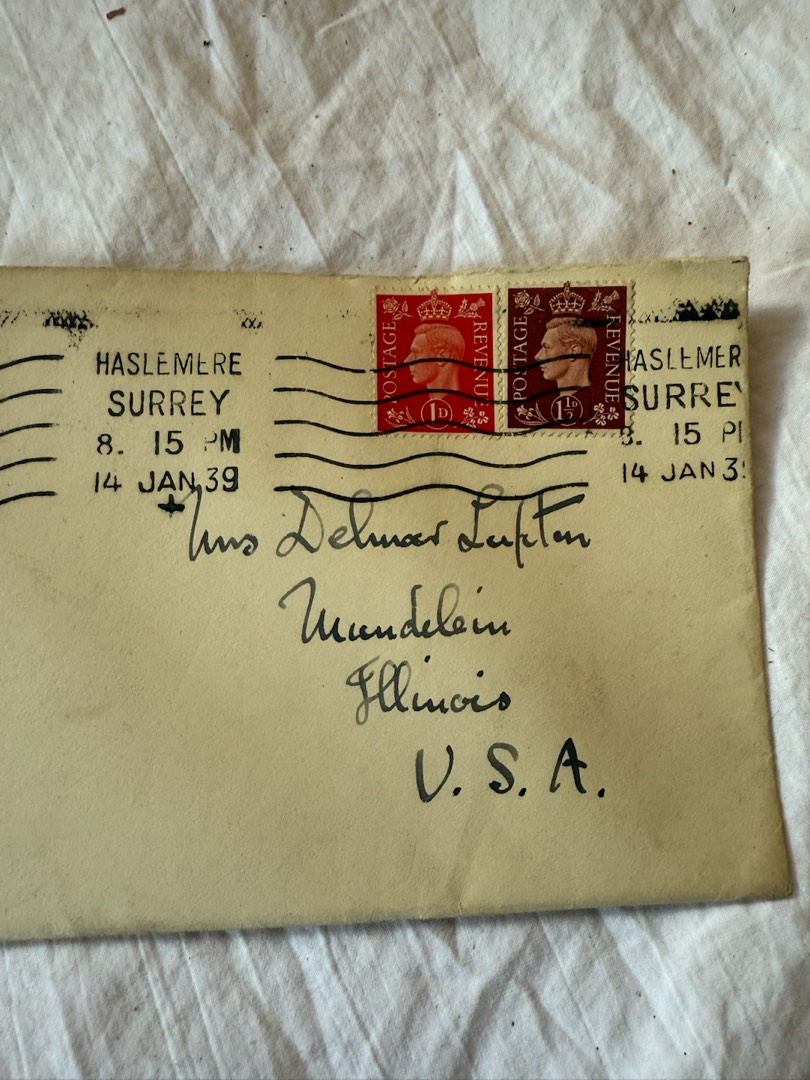 HASLEMERE
SURREY
8. 15 PM
14 JAN 39
POSTAGE REVENUE
1D
POSTAGE REVENUE
1½D
HASLEMER
SURREY
8. 15 P
14 JAN 3
Mrs Delmar Lupton
Mundelein
Illinois
U. S. A.